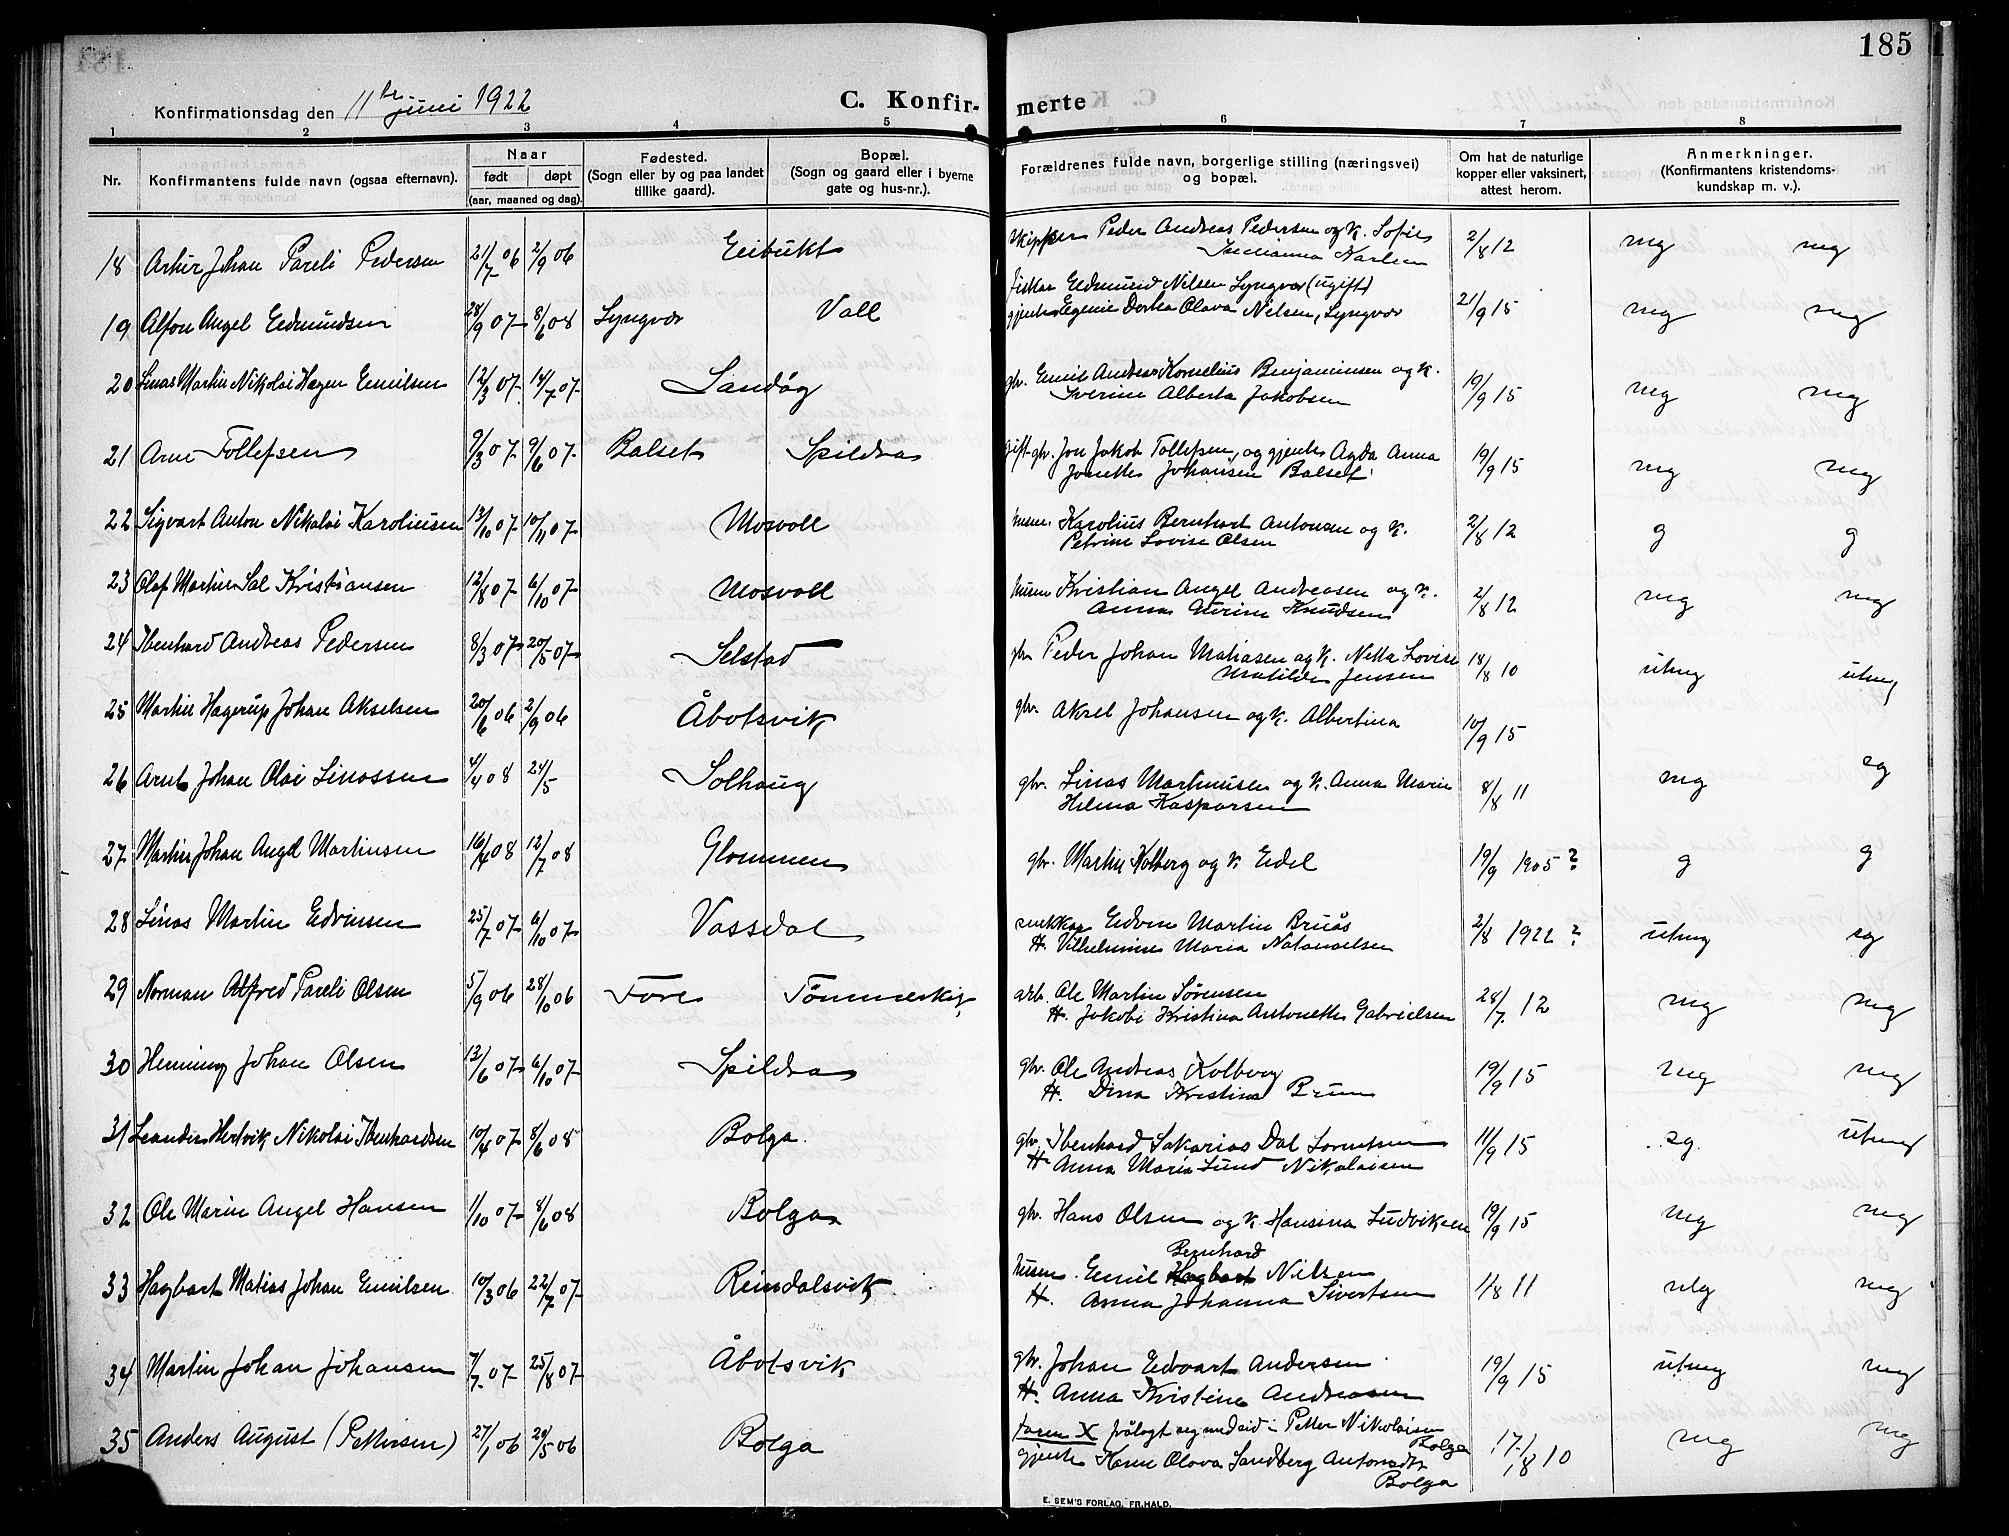 185
Konfirmationsdag den 11te juni 1922
C. Konfirmerte
1 2 3 4 5 6 7 8
Nr. Konfirmantens fulde navn (ogsaa efternavn). Naar født døpt (aar, maaned og dag). Fødested. (Sogn eller by og paa landet tillike gaard). Bopæl. (Sogn og gaard eller i byerne gate og hus-nr.). Forældrenes fulde navn, borgerlige stilling (næringsvei) og bopæl. Om hat de naturlige kopper eller vaksinert, attest herom. Anmerkninger. (Konfirmantens kristendomskundskap m. v.).
18 Artur Johan Pareli Pedersen 21/7 06 2/9 06 Eeibukt skipper Peder Andreas Pedersen og k. Sofie 2/8 12 mg mg
Karlsen
19 Alfon Angel Eedmundsen 28/9 07 8/6 08 Lyngvær Vall fisker Eedmund Nilsen Lyngvær (ugift) 21/9 15 mg mg
gjente Egenie Dortea Olava Nilsen, Lyngvær
20 Linas Martin Nikolai Hagen Emilsen 12/3 07 14/7 07 Sandåg gbr. Emil Andreas Kornelius Benjaminsen og k. 19/9 15 mg mg
Iverine Alberta Jakobsen
21 Arne Tollefsen 9/3 07 9/6 07 Balset Spildra gift gbr. Jon Jakob Tollefsen, og gjente Agda Anna 19/9 15 mg mg
Jonette Johansen Balset
22 Sigvart Anton Nikolai Karoliusen 13/10 07 10/11 07 Mosvoll Karolius Bernhart Antonsen og k. 2/8 12 g g
Petrine Lovise Olsen
23 Olaf Martin Sal Kristiansen 12/8 07 6/10 07 Mosvoll Kristian Angel Andreasen og k. 2/8 12 mg mg
Anna Nerine Knudsen
24 Ibenhard Andreas Pedersen 8/3 07 20/5 07 Selstad gbr Peder Johan Matiasen og k. Netta Lovise 18/8 10 utmg utmg
Matilde Jensen
25 Martin Hagerup Johan Akselsen 20/6 06 2/9 06 Åbotsvik gbr. Aksel Johansen og k. Albertina 10/9 15
26 Arnt Johan Olai Linassen 4/4 08 24/5 Solhaug gbr. Linas Martinusen og k. Anna Marie 8/8 11 mg sg
Helena Kaspersen
27 Martin Johan Angel Martinsen 16/4 08 12/7 08 Glommen gbr. Martin Kolberg og k. Eidel 19/9 1905? g g
28 Linas Martin Edvinsen 25/7 07 6/10 07 Vassdal snekker Edvin Martin Bruås 2/8 1922? utmg sg
H. Vilhelmine Maria Natanaelsen
29 Norman Alfred Pareli Olsen 5/9 06 28/10 06 Fore Tömmerskig arb. Ole Martin Sørensen 28/7 12 mg mg
H. Jakobe Kristina Antonette Gabrielsen
30 Henning Johan Olsen 13/6 07 6/10 07 Spildra gbr. Ole Andreas Kolberg 19/9 15 mg mg
H. Dina Kristina Bruun
31 Leander Hertvik Nikolai Ibenhardsen 10/4 07 8/6 08 Bolga gbr. Ibenhard Sakarias Dal Lorentsen 11/9 15 sg. utmg
H Anna Maria Lund Nikolaisen
32 Ole Marin Angel Hansen 1/10 07 8/6 08 Bolga gbr. Hans Olsen og k. Hansina Ludviksen 19/9 15 mg mg
33 Hagbart Matias Johan Emilsen 10/3 06 22/7 07 Reindalsvik Emil Hagbart Bernhard Nilsen 1/8 11 mg mg
H. Anna Johanna Sivertsen
34 Martin Johan Johansen 7/7 07 25/8 07 Åbotsvik gbr. Johan Edvart Andersen 19/9 15 utmg mg
H. Anna Kristine Andreasen
35 Anders August (Pettersen) 27/1 06 20/5 06 Bolga faren X frålagt seg med eid - Petter Nikolaisen Bolga 17/8 10 mg mg
gjente Karen Olava Sandberg Antonsdtr Bolga
E. SEM'S FORLAG, FR.HALD.